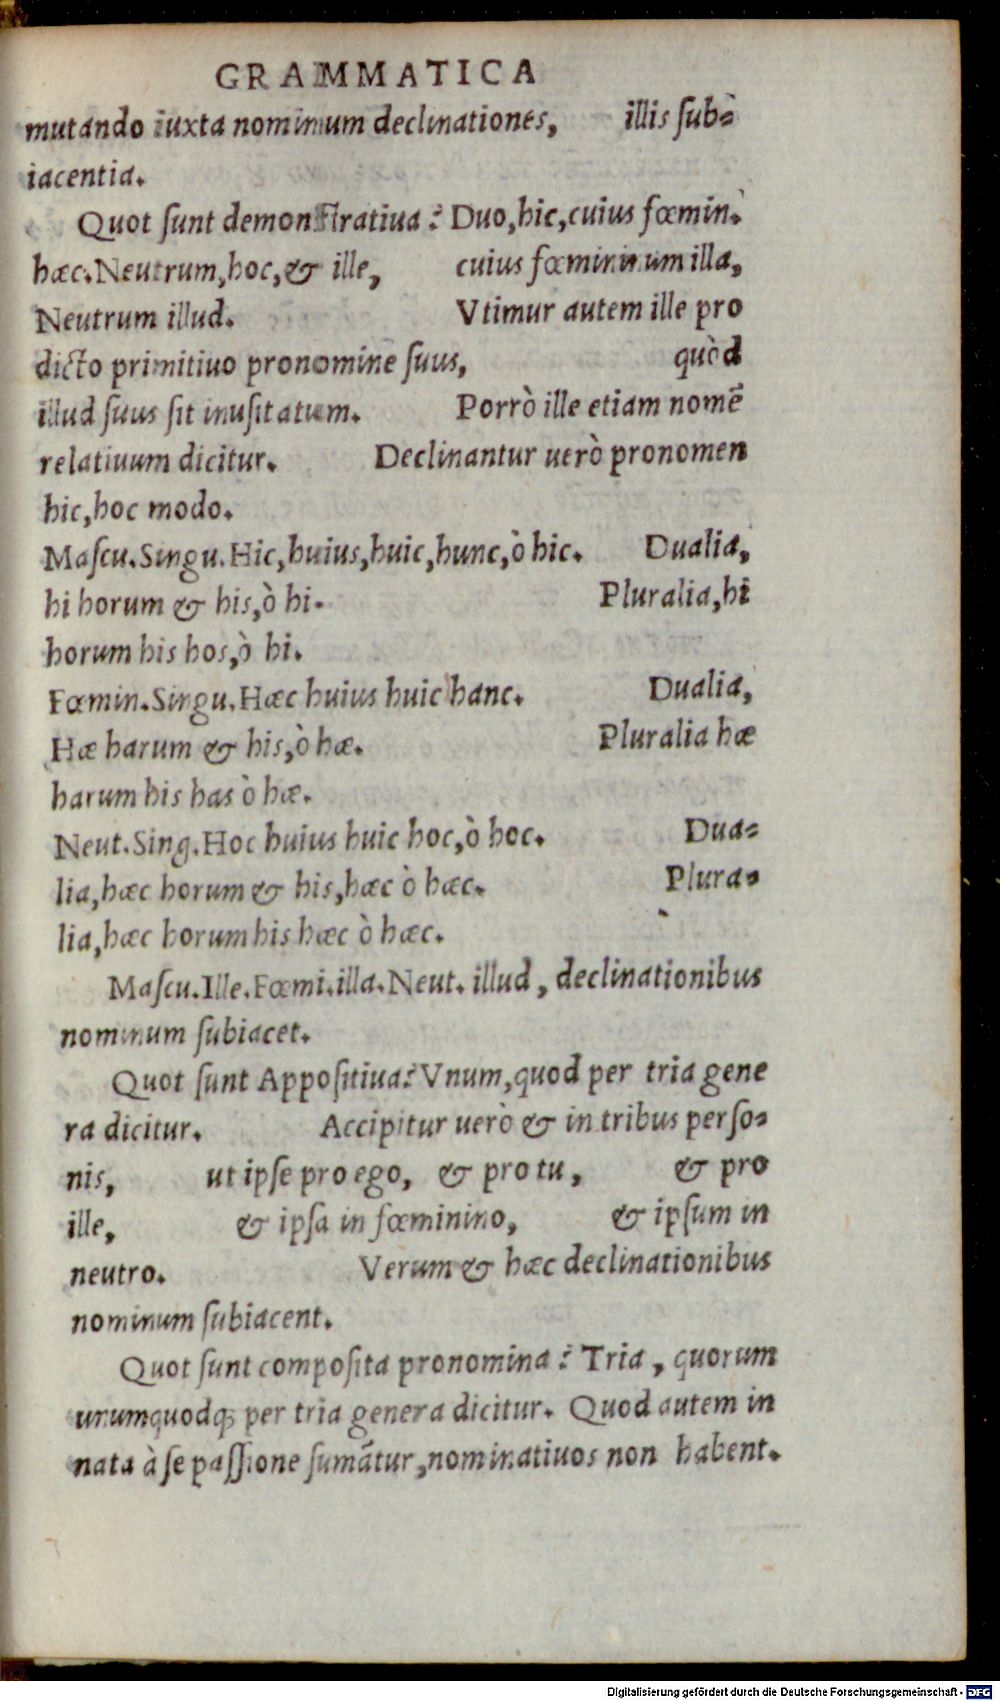 GRAMMATICA
mutando iuxta nominum declinationes, illis sub⸗
iacentia.
Quot ſunt demonſtratiua? Duo, hic, cuius fœmin.
hæc. Neutrum, hoc, & ille, cuius fœmininum illa,
Neutrum illud. Vtimur autem ille pro
dicto primitiuo pronomine ſuus, quòd
illud ſuus ſit inuſitatum. Porrò ille etiam nomẽ
relatiuum dicitur. Declinantur uerò pronomen
hic, hoc modo.
Maſcu. Singu. Hic, huius, huic, hunc, ò hic. Dualia,
hi horum & his, ò hi. Pluralia, hi
horum his hos, ò hi.
Fœmin. Singu. Hæc huius huic hanc. Dualia,
Hæ harum & his, ò hæ. Pluralia hæ
harum his has ò hæ.
Neut. Sing. Hoc huius huic hoc, ò hoc. Dua⸗
lia, hæc horum & his, hæc ò hæc. Plura⸗
lia, hæc horum his hæc ò hæc.
Maſcu. Ille. Fœmi. illa. Neut. illud, declinationibus
nominum ſubiacet.
Quot ſunt Appoſitiua? Vnum, quod per tria gene
ra dicitur. Accipitur uerò & in tribus perſo⸗
nis, ut ipſe pro ego, & pro tu, & pro
ille, & ipſa in fœminino, & ipſum in
neutro. Verum & hæc declinationibus
nominum ſubiacent.
Quot ſunt compoſita pronomina? Tria, quorum
unumquodq; per tria genera dicitur. Quod autem in
nata à ſe paſſione ſumãtur, nominatiuos non habent.
Digitalisierung gefördert durch die Deutsche Forschungsgemeinschaft - DFG